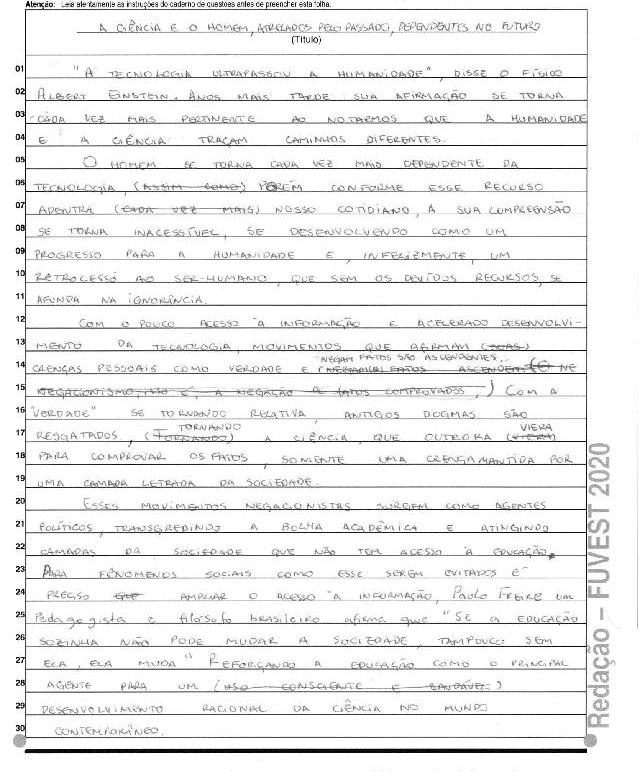 Atenção: Leia atentamente as instruções do caderno de questões antes de preencher esta folha.
A CIÊNCIA E O HOMEM, ATRELADOS PELO PASSADO, DEPENDENTES NO FUTURO
(Título)
01 "A TECNOLOGIA ULTRAPASSOU A HUMANIDADE", DISSE O FÍSICO
02 ALBERT EINSTEIN. ANOS MAIS TARDE SUA AFIRMAÇÃO SE TORNA
03 CADA VEZ MAIS PERTINENTE AO NOTARMOS QUE A HUMANIDADE
04 E A CIÊNCIA TRAÇAM CAMINHOS DIFERENTES.
05 O HOMEM SE TORNA CADA VEZ MAIS DEPENDENTE DA
06 TECNOLOGIA, (ASSIM COMO) PORÉM CONFORME ESSE RECURSO
07 ADENTRA (CADA VEZ MAIS) NOSSO COTIDIANO, A SUA COMPREENSÃO
08 SE TORNA INACESSÍVEL, SE DESENVOLVENDO COMO UM
09 PROGRESSO PARA A HUMANIDADE E, INFELIZMENTE, UM
10 RETROCESSO AO SER-HUMANO, QUE SEM OS DEVIDOS RECURSOS, SE
11 AFUNDA NA IGNORÂNCIA.
12 COM O POUCO ACESSO À INFORMAÇÃO E ACELERADO DESENVOLVI-
13 MENTO DA TECNOLOGIA, MOVIMENTOS QUE AFIRMAM (SUAS)
NEGAM FATOS SÃO ASCENDENTES.
14 CRENÇAS PESSOAIS COMO VERDADE E (NEGAM OS FATOS ASCENDEM. (O NE
15 NEGACIONISMO, ISTO É, A NEGAÇÃO DE FATOS COMPROVADOS,) COM A
16 "VERDADE" SE TORNANDO RELATIVA, ANTIGOS DOGMAS SÃO
TORNANDO VIERA
17 RESGATADOS, (TORNANDO) A CIÊNCIA, QUE OUTRORA (VIERA)
18 PARA COMPROVAR OS FATOS, SOMENTE UMA CRENÇA MANTIDA POR
19 UMA CAMADA LETRADA DA SOCIEDADE.
20 ESSES MOVIMENTOS NEGACIONISTAS SURGEM COMO AGENTES
21 POLÍTICOS, TRANSGREDINDO A BOLHA ACADÊMICA E ATINGINDO
22 CAMADAS DA SOCIEDADE QUE NÃO TEM ACESSO À EDUCAÇÃO.
23 PARA FENOMENOS SOCIAIS COMO ESSE SEREM EVITADOS É
24 PRECISO QUE AMPLIAR O ACESSO À INFORMAÇÃO, PAULO FREIRE UM
25 Pedagogista e filósofo brasileiro afirma que "SE A EDUCAÇÃO
26 SOZINHA NÃO PODE MUDAR A SOCIEDADE, TAMPOUCO SEM
27 ELA, ELA MUDA" REFORÇANDO A EDUCAÇÃO COMO O PRINCIPAL
28 AGENTE PARA UM (USO CONSCIENTE E SAUDÁVEL)
29 DESENVOLVIMENTO RACIONAL DA CIÊNCIA NO MUNDO
30 CONTEMPORÂNEO.
Redação – FUVEST 2020